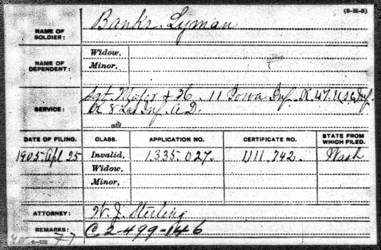 (3-25-8)
NAME OF SOLDIER: Banks, Lyman
NAME OF DEPENDENT: Widow,
Minor,
SERVICE: Sgt Major + H. 11 Iowa Inf.
DATE OF FILING. CLASS. APPLICATION NO. CERTIFICATE NO. STATE FROM WHICH FILED.
1905 Apl 25 Invalid, 1.335.027. 1.111.742. Wash
Widow,
Minor,
ATTORNEY: W. J. Sterling
REMARKS: C 2-499-146